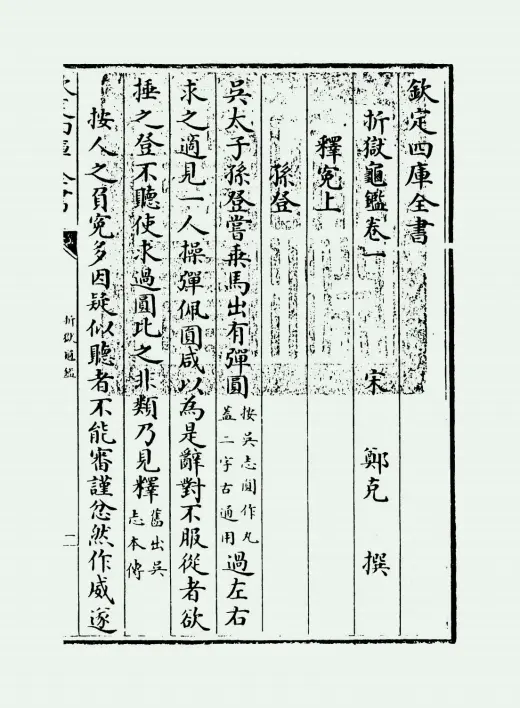 欽定四庫全書
折獄龜鑑卷一
宋 鄭克 撰
釋冤上
孫登
吳太子孫登嘗乗馬出有彈圓按吳志圓作丸蓋二字古通用過左右
求之適見一人操彈佩圓咸以為是辭對不服從者欲
捶之登不聽使求過圓比之非類乃見釋舊出吳志本傳
按人之負冤多因疑似聽者不能審謹忿然作威遂
折獄龜鑑